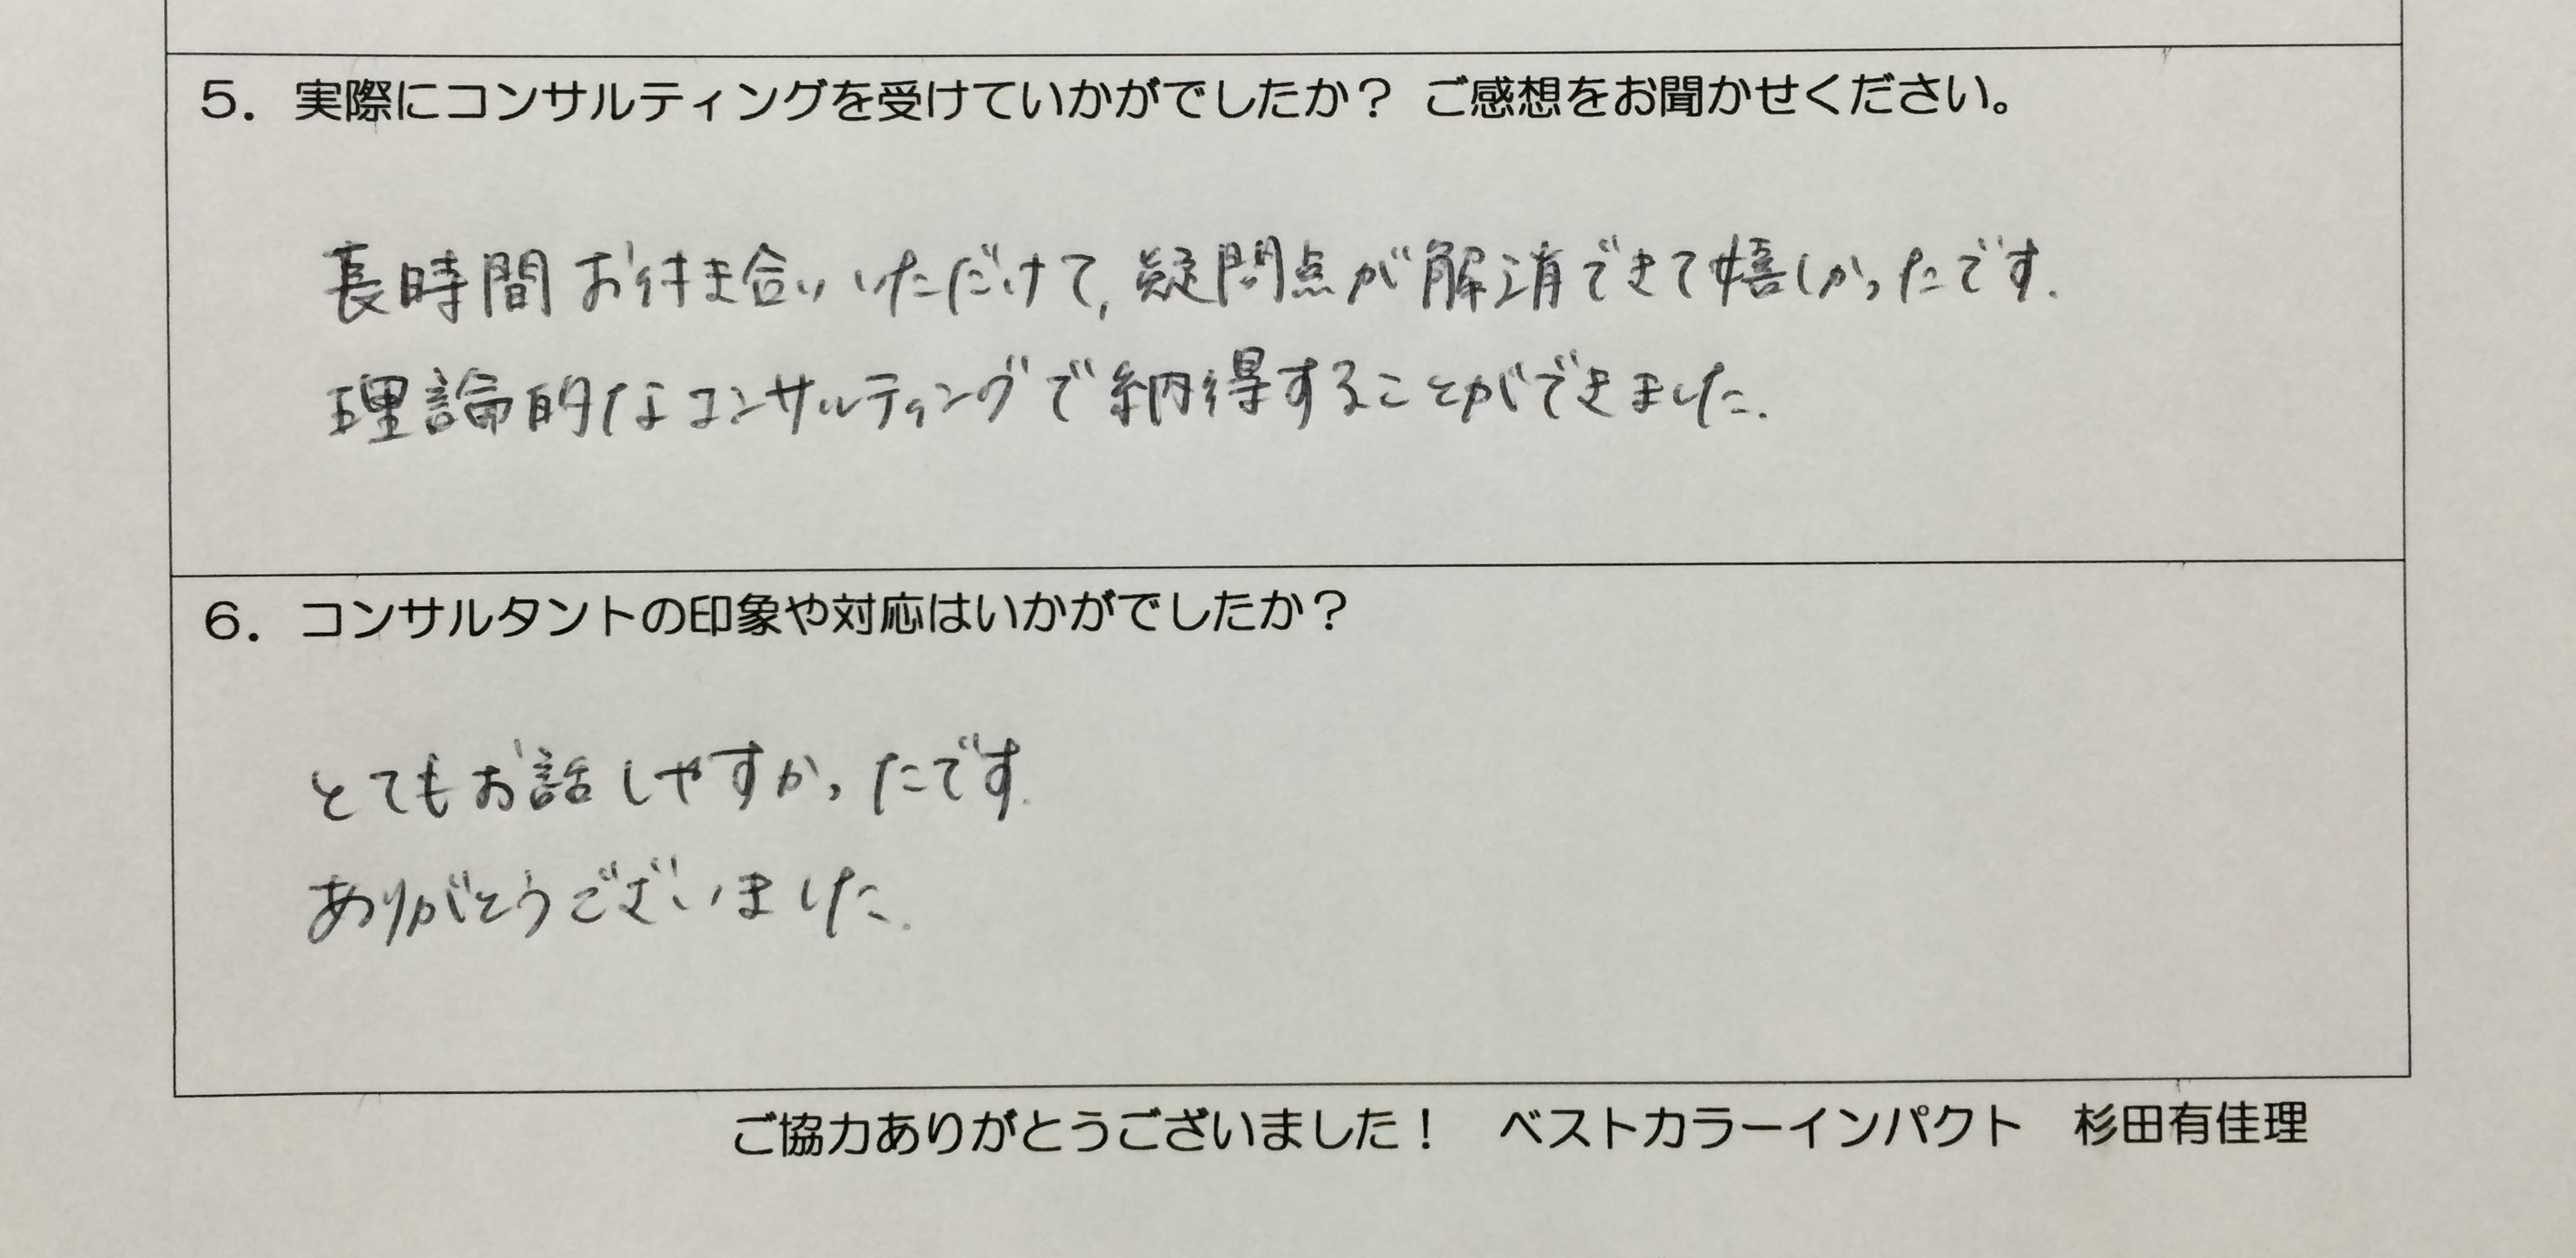 5．実際にコンサルティングを受けていかがでしたか？ ご感想をお聞かせください。
長時間お付き合いいただけて,疑問点が解消できて嬉しかったです.
理論的なコンサルティングで納得することができました.
6．コンサルタントの印象や対応はいかがでしたか？
とてもお話しやすかったです.
ありがとうございました.
ご協力ありがとうございました！　ベストカラーインパクト　杉田有佳理